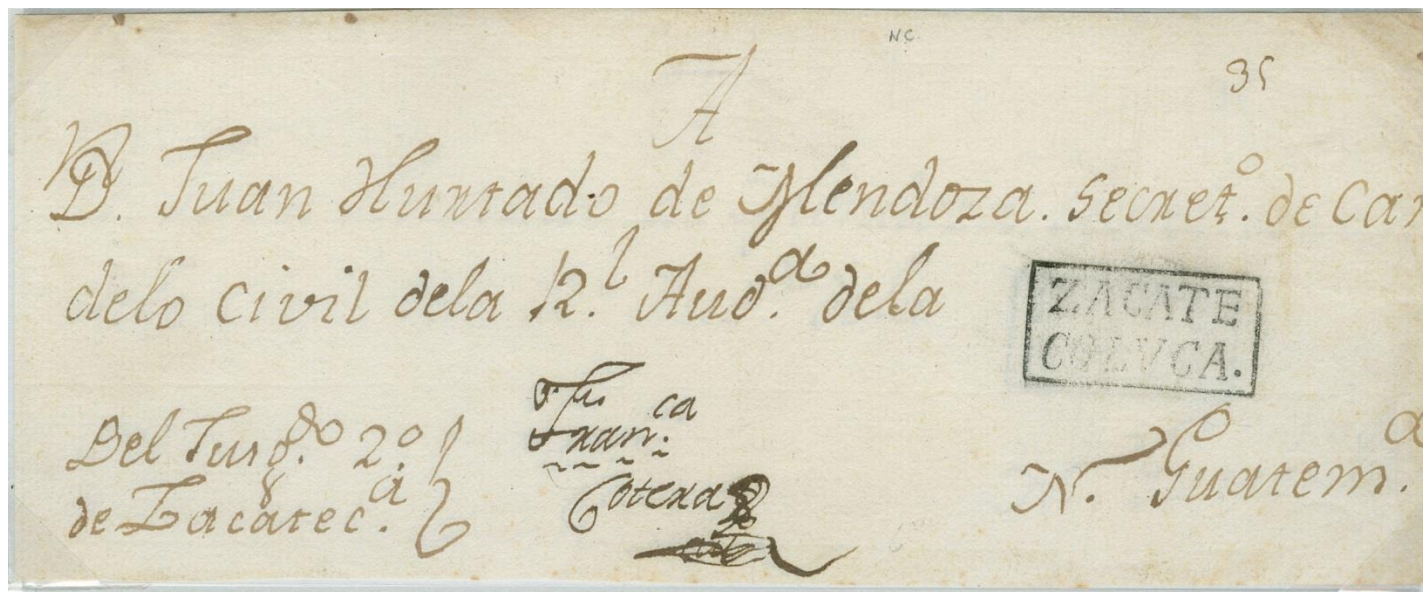 NC
35
A
D. Juan Hurtado de Mendoza. Secret.º de Cam
delo Civil dela R.l Aud.a dela
ZACATE
COLVCA.
Del Jusg.do 2.º
de Zacatec.a
Fran.ca
Cotera
N. Guatem.a